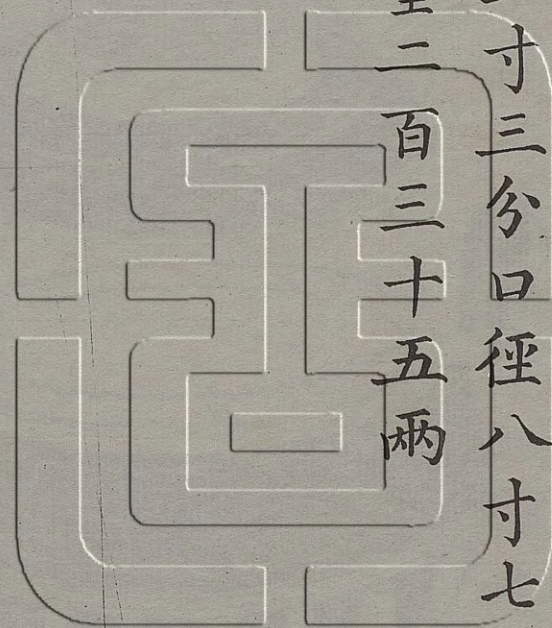 寸三分口徑八寸七
二百三十五兩